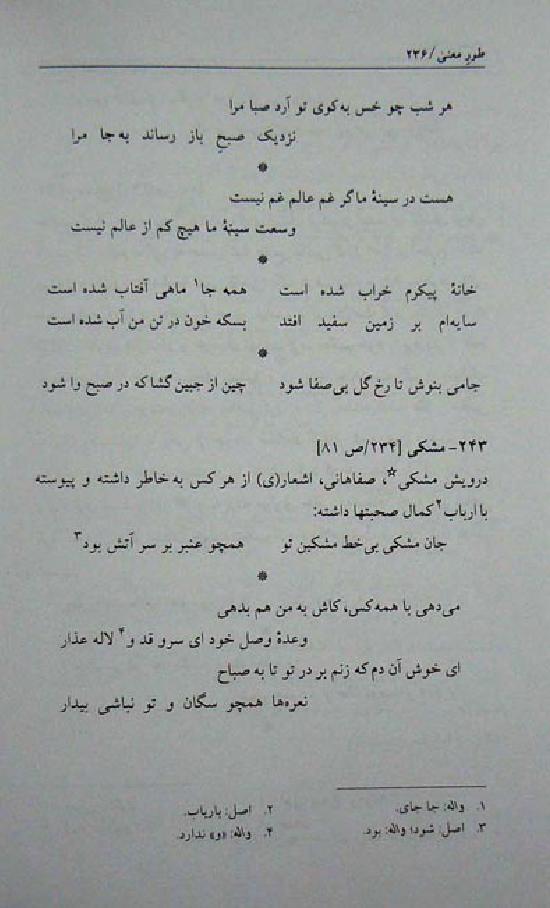 طور معنی / ۲۳۶
هر شب چو خس به‌کوی تو آرد صبا مرا
نزدیک صبح باز رساند به‌جا مرا
*
هست در سینهٔ ما گر غم عالم غم نیست
وسعت سینهٔ ما هیچ کم از عالم نیست
*
خانهٔ پیکرم خراب شده است همه جا۱ ماهی آفتاب شده است
سایه‌ام بر زمین سفید افتد بسکه خون در تن من آب شده است
*
جامی بنوش تا رخ گل بی‌صفا شود چین از جبین گشا که در صبح وا شود
۲۴۳- مشکی [۲۳۴/ص ۸۱]
درویش مشکی☆، صفاهانی، اشعار(ی) از هر کس به خاطر داشته و پیوسته
با ارباب۲ کمال صحبتها داشته:
جان مشکی بی‌خط مشکین تو همچو عنبر بر سر آتش بود۳
*
می‌دهی با همه‌کس، کاش به من هم بدهی
وعدهٔ وصل خود ای سرو قد و۴ لاله عذار
ای خوش آن دم که زنم بر در تو تا به صباح
نعره‌ها همچو سگان و تو نباشی بیدار
۱. واله: جا جای. ۲. اصل: باریاب.
۳. اصل: شود؛ واله: بود. ۴. واله: «و» ندارد.